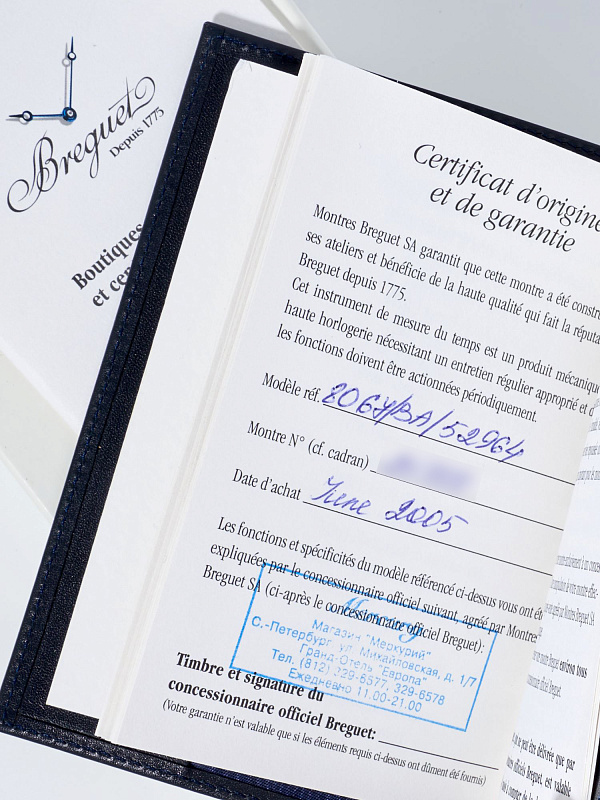 Breguet
Depuis 1775
Boutiques
et cer
Certificat d'origine
et de garantie
Montres Breguet SA garantit que cette montre a été constr
ses ateliers et bénéficie de la haute qualité qui fait la réputa
Breguet depuis 1775.
Cet instrument de mesure du temps est un produit mécanique
haute horlogerie nécessitant un entretien régulier approprié et d
les fonctions doivent être actionnées périodiquement.
Modèle réf. 8067/BA/52964
Montre N° (cf. cadran)
Date d'achat June 2005
Les fonctions et spécificités du modèle référencé ci-dessus vous ont ét
expliquées par le concessionnaire officiel suivant, agréé par Montre
Breguet SA (ci-après le concessionnaire officiel Breguet):
Магазин "Меркурий"
С.-Петербург, ул. Михайловская, д. 1/7
Гранд-Отель "Европа"
Тел. (812) 329-6577, 329-6578
Ежедневно 11.00-21.00
Timbre et signature du
concessionnaire officiel Breguet:
(Votre garantie n'est valable que si les éléments requis ci-dessus ont dûment été fournis)